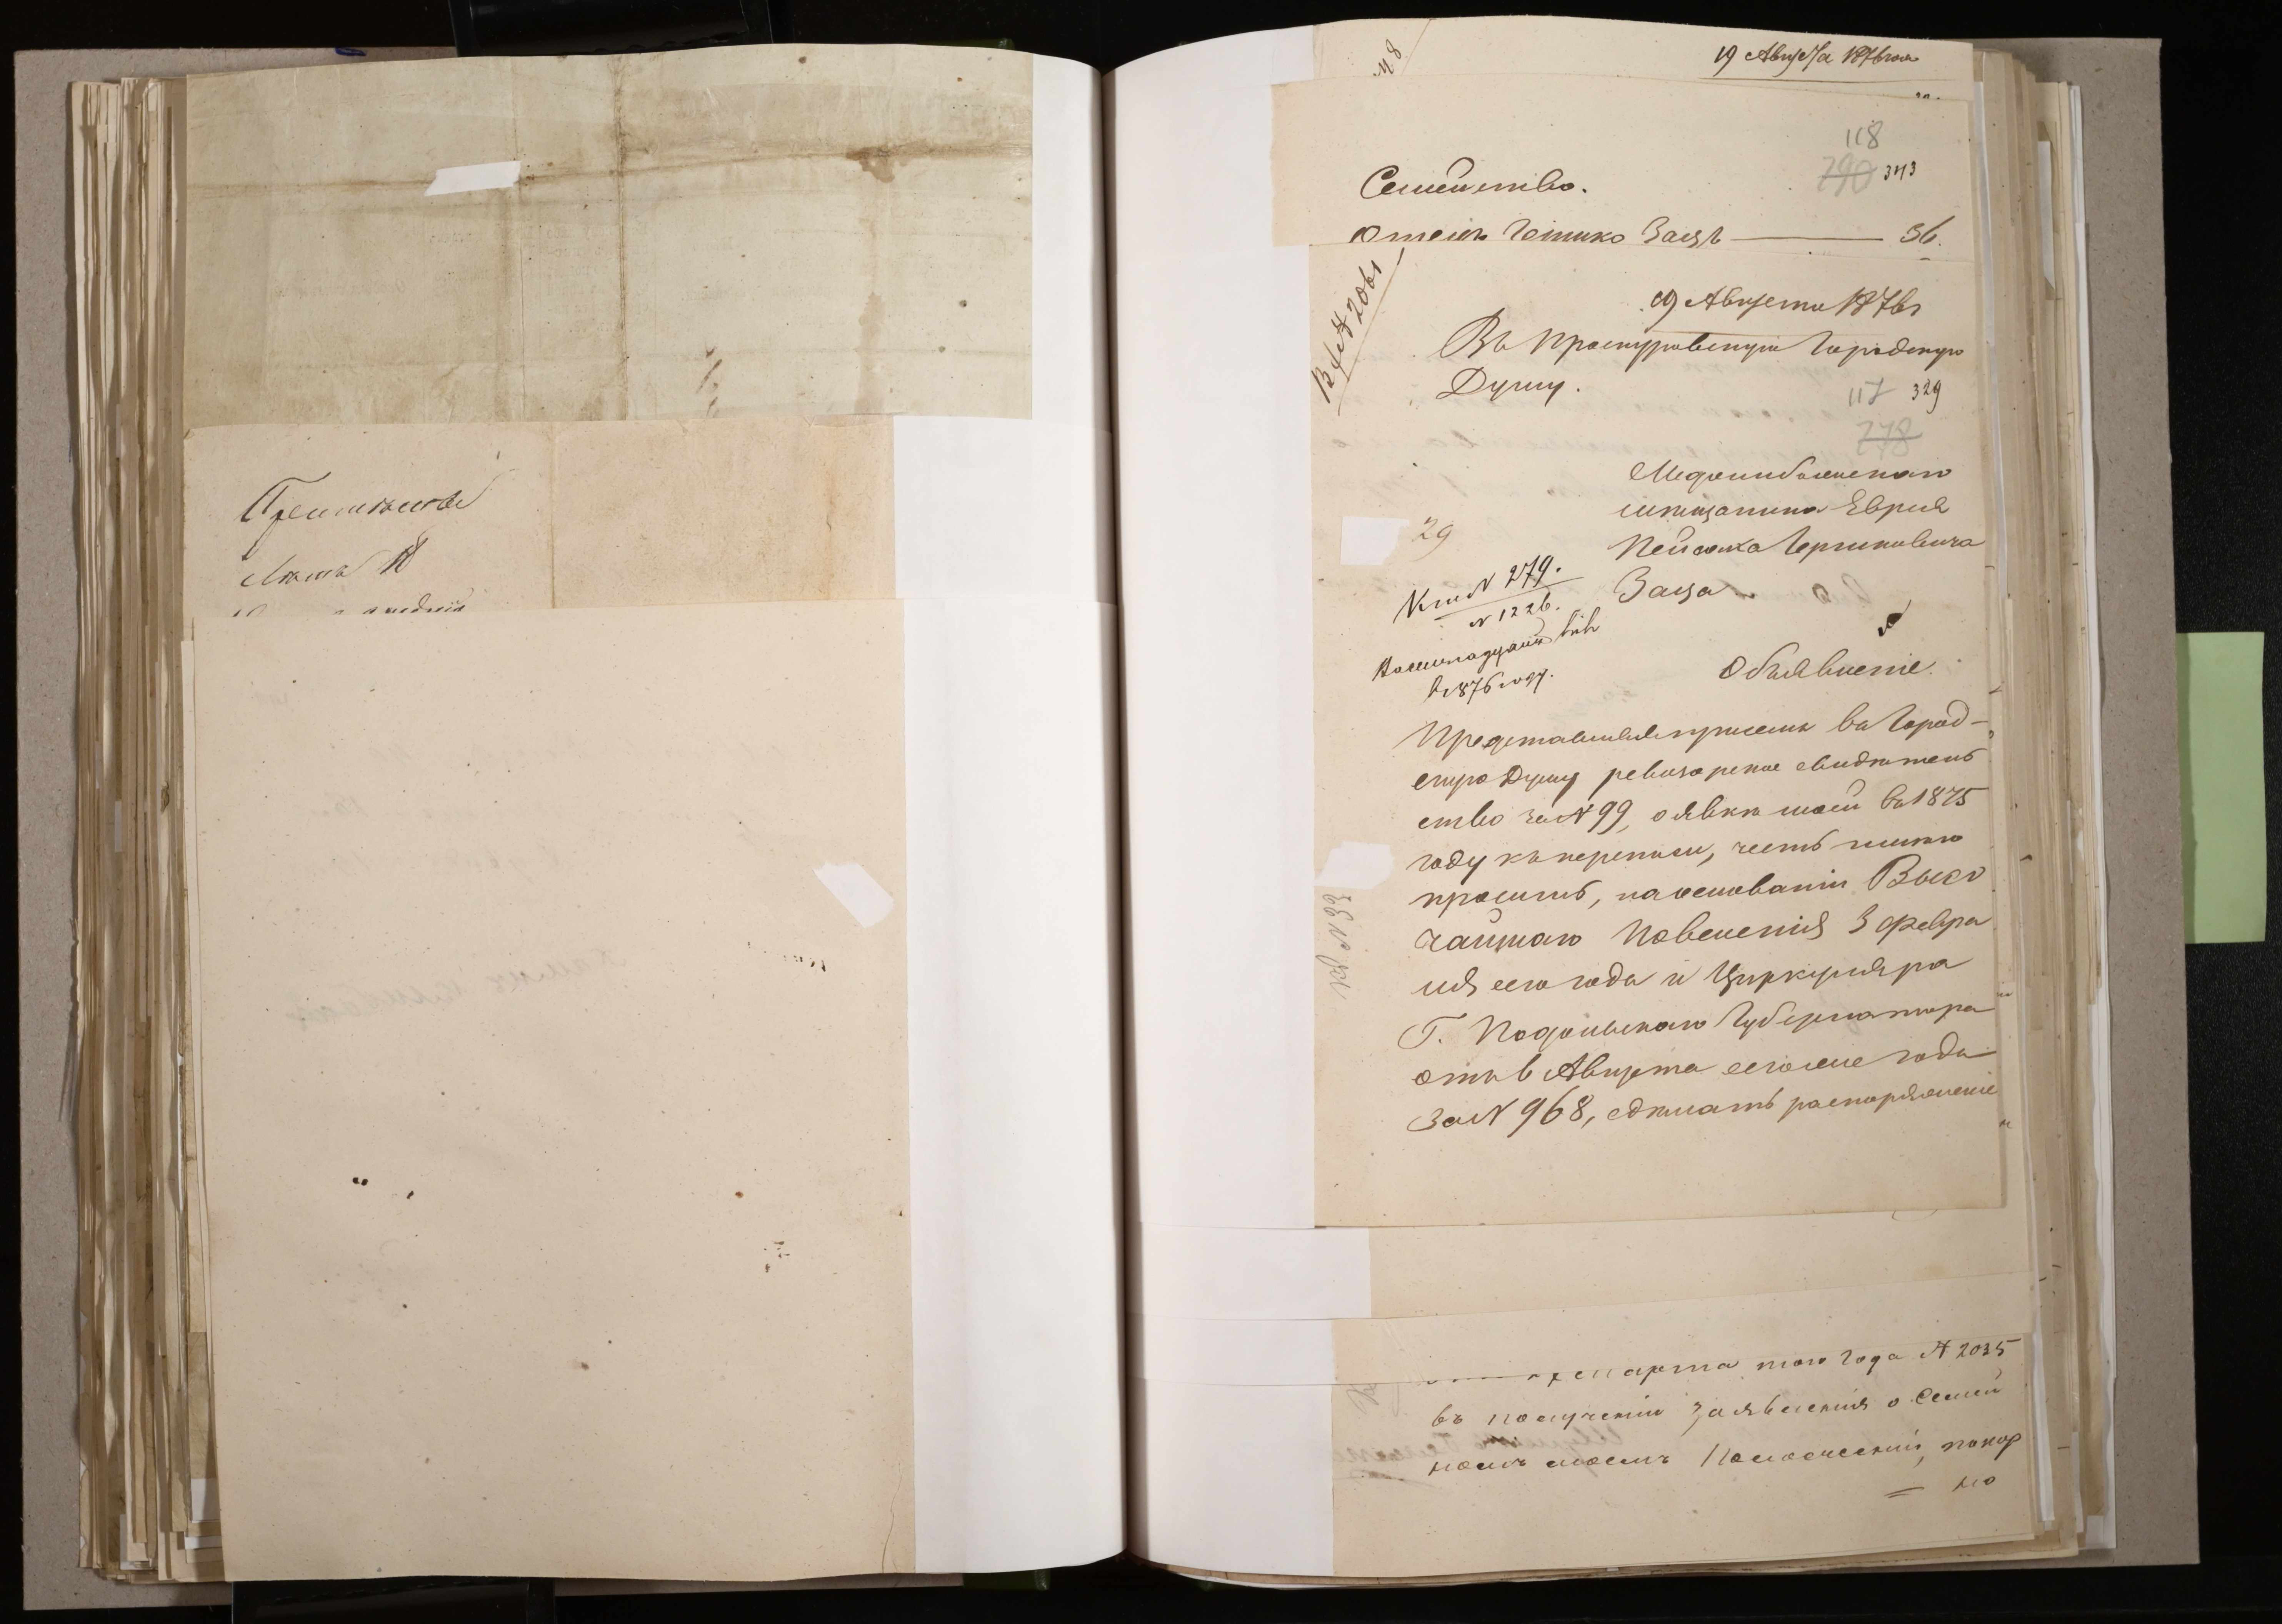 Лист 18
48
19 Августа 1876 года
118
290 343
Семейство.
Отец Гошико Заяз — 36.
Вх № 2061
19 Августа 1876 г
Въ Проскуровскую Городскую
Думу.
117 329
278
Меджибожскаго
мѣщанина Еврея
Пейсаха Гершковича
Заяза
29
Кт № 279.
№ 1226.
в 1876 году.
Объявленіе.
Представляя присемъ въ Город-
скую Думу ревизорское свидѣтель
ство за № 99, о явкѣ моей въ 1875
году къ переписи, честь имѣю
просить, на основаніи Высо
чайшаго Повеленія 3 Февра
ля сего года и Циркуляра
Г. Подольскаго Губернатора
отъ 6 Августа сего же года
За № 968, сдѣлать распоряженіе
№ 33
марта того Года № 2035
въ полученіи Заявленія о Семей
номъ моемъ Положеніи, покор
но